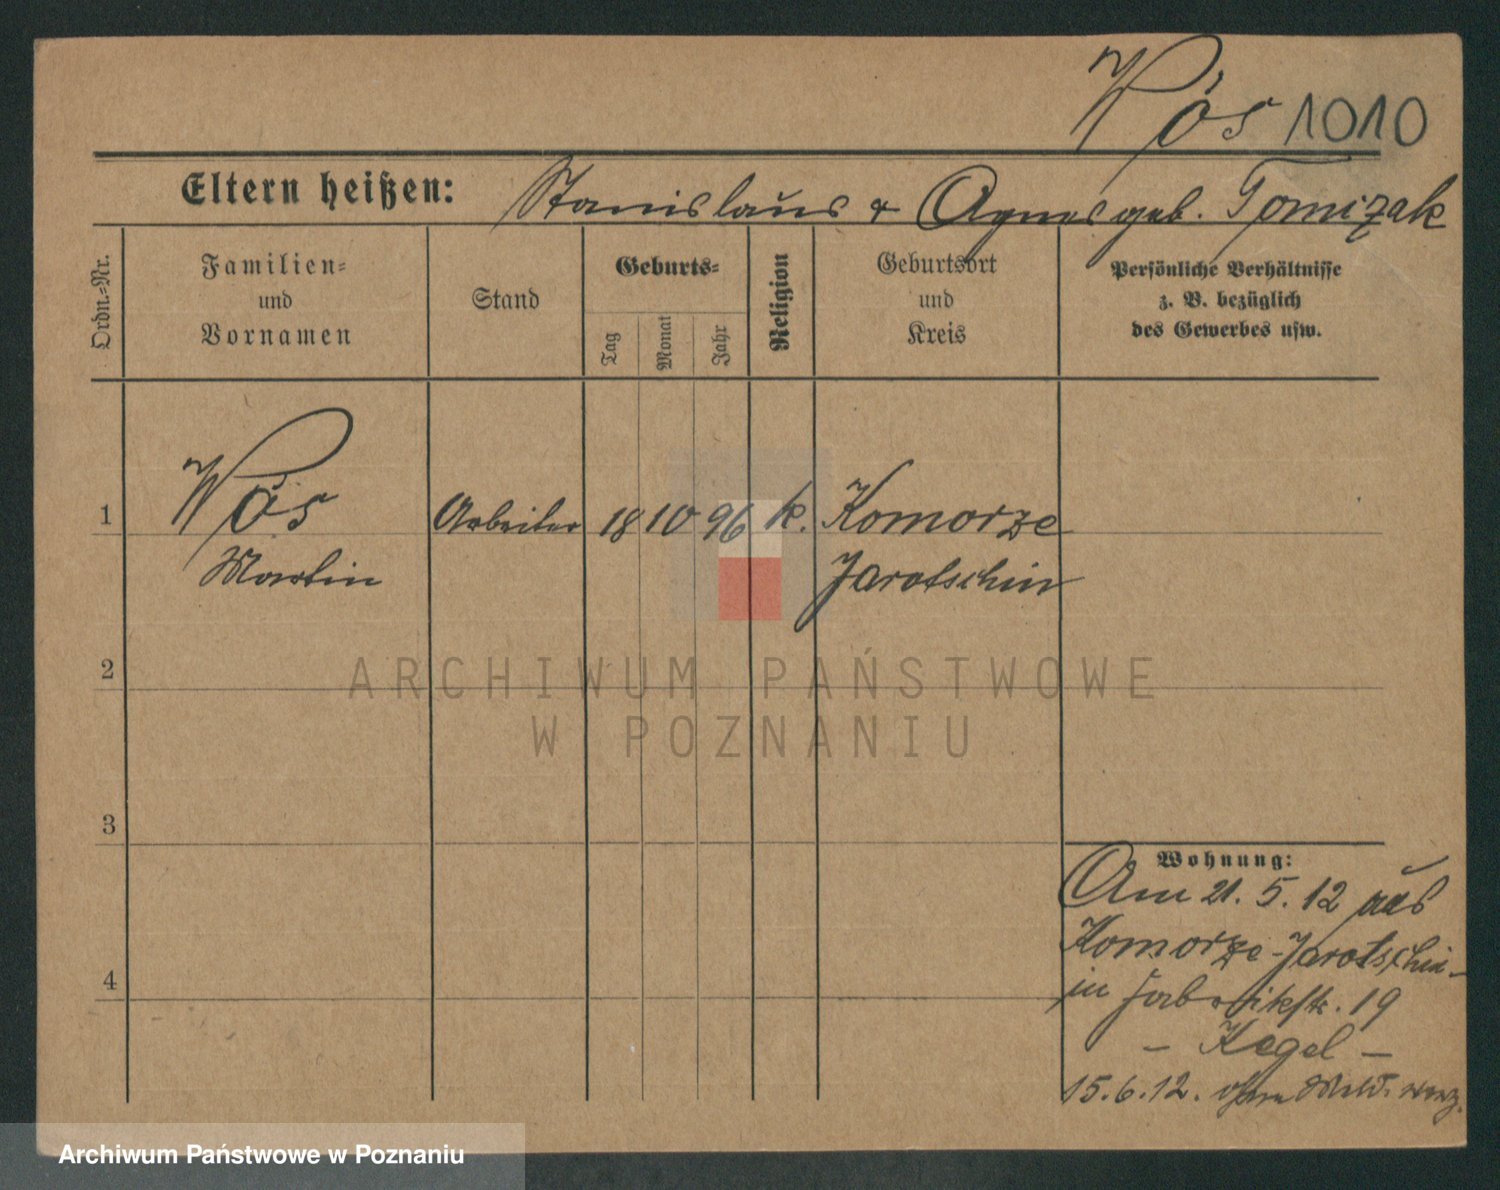 Wós 1010
Eltern heißen: Stanislaus & Agnes geb. Tomizak
Ordn.-Nr.
Familien-
und
Vornamen
Stand
Geburts-
Tag
Monat
Jahr
Religion
Geburtsort
und
Kreis
Persönliche Verhältnisse
z. B. bezüglich
des Gewerbes usw.
1 Wós Arbeiter 18 10 96 k. Komorze
Martin Jarotschin
2
ARCHIWUM PAŃSTWOWE
W POZNANIU
3
Wohnung:
Am 21. 5. 12 aus
Komorze-Jarotschin-
4
in Fabrikstr. 19
- Kegel -
15.6.12. ohne Meld. verz.
Archiwum Państwowe w Poznaniu